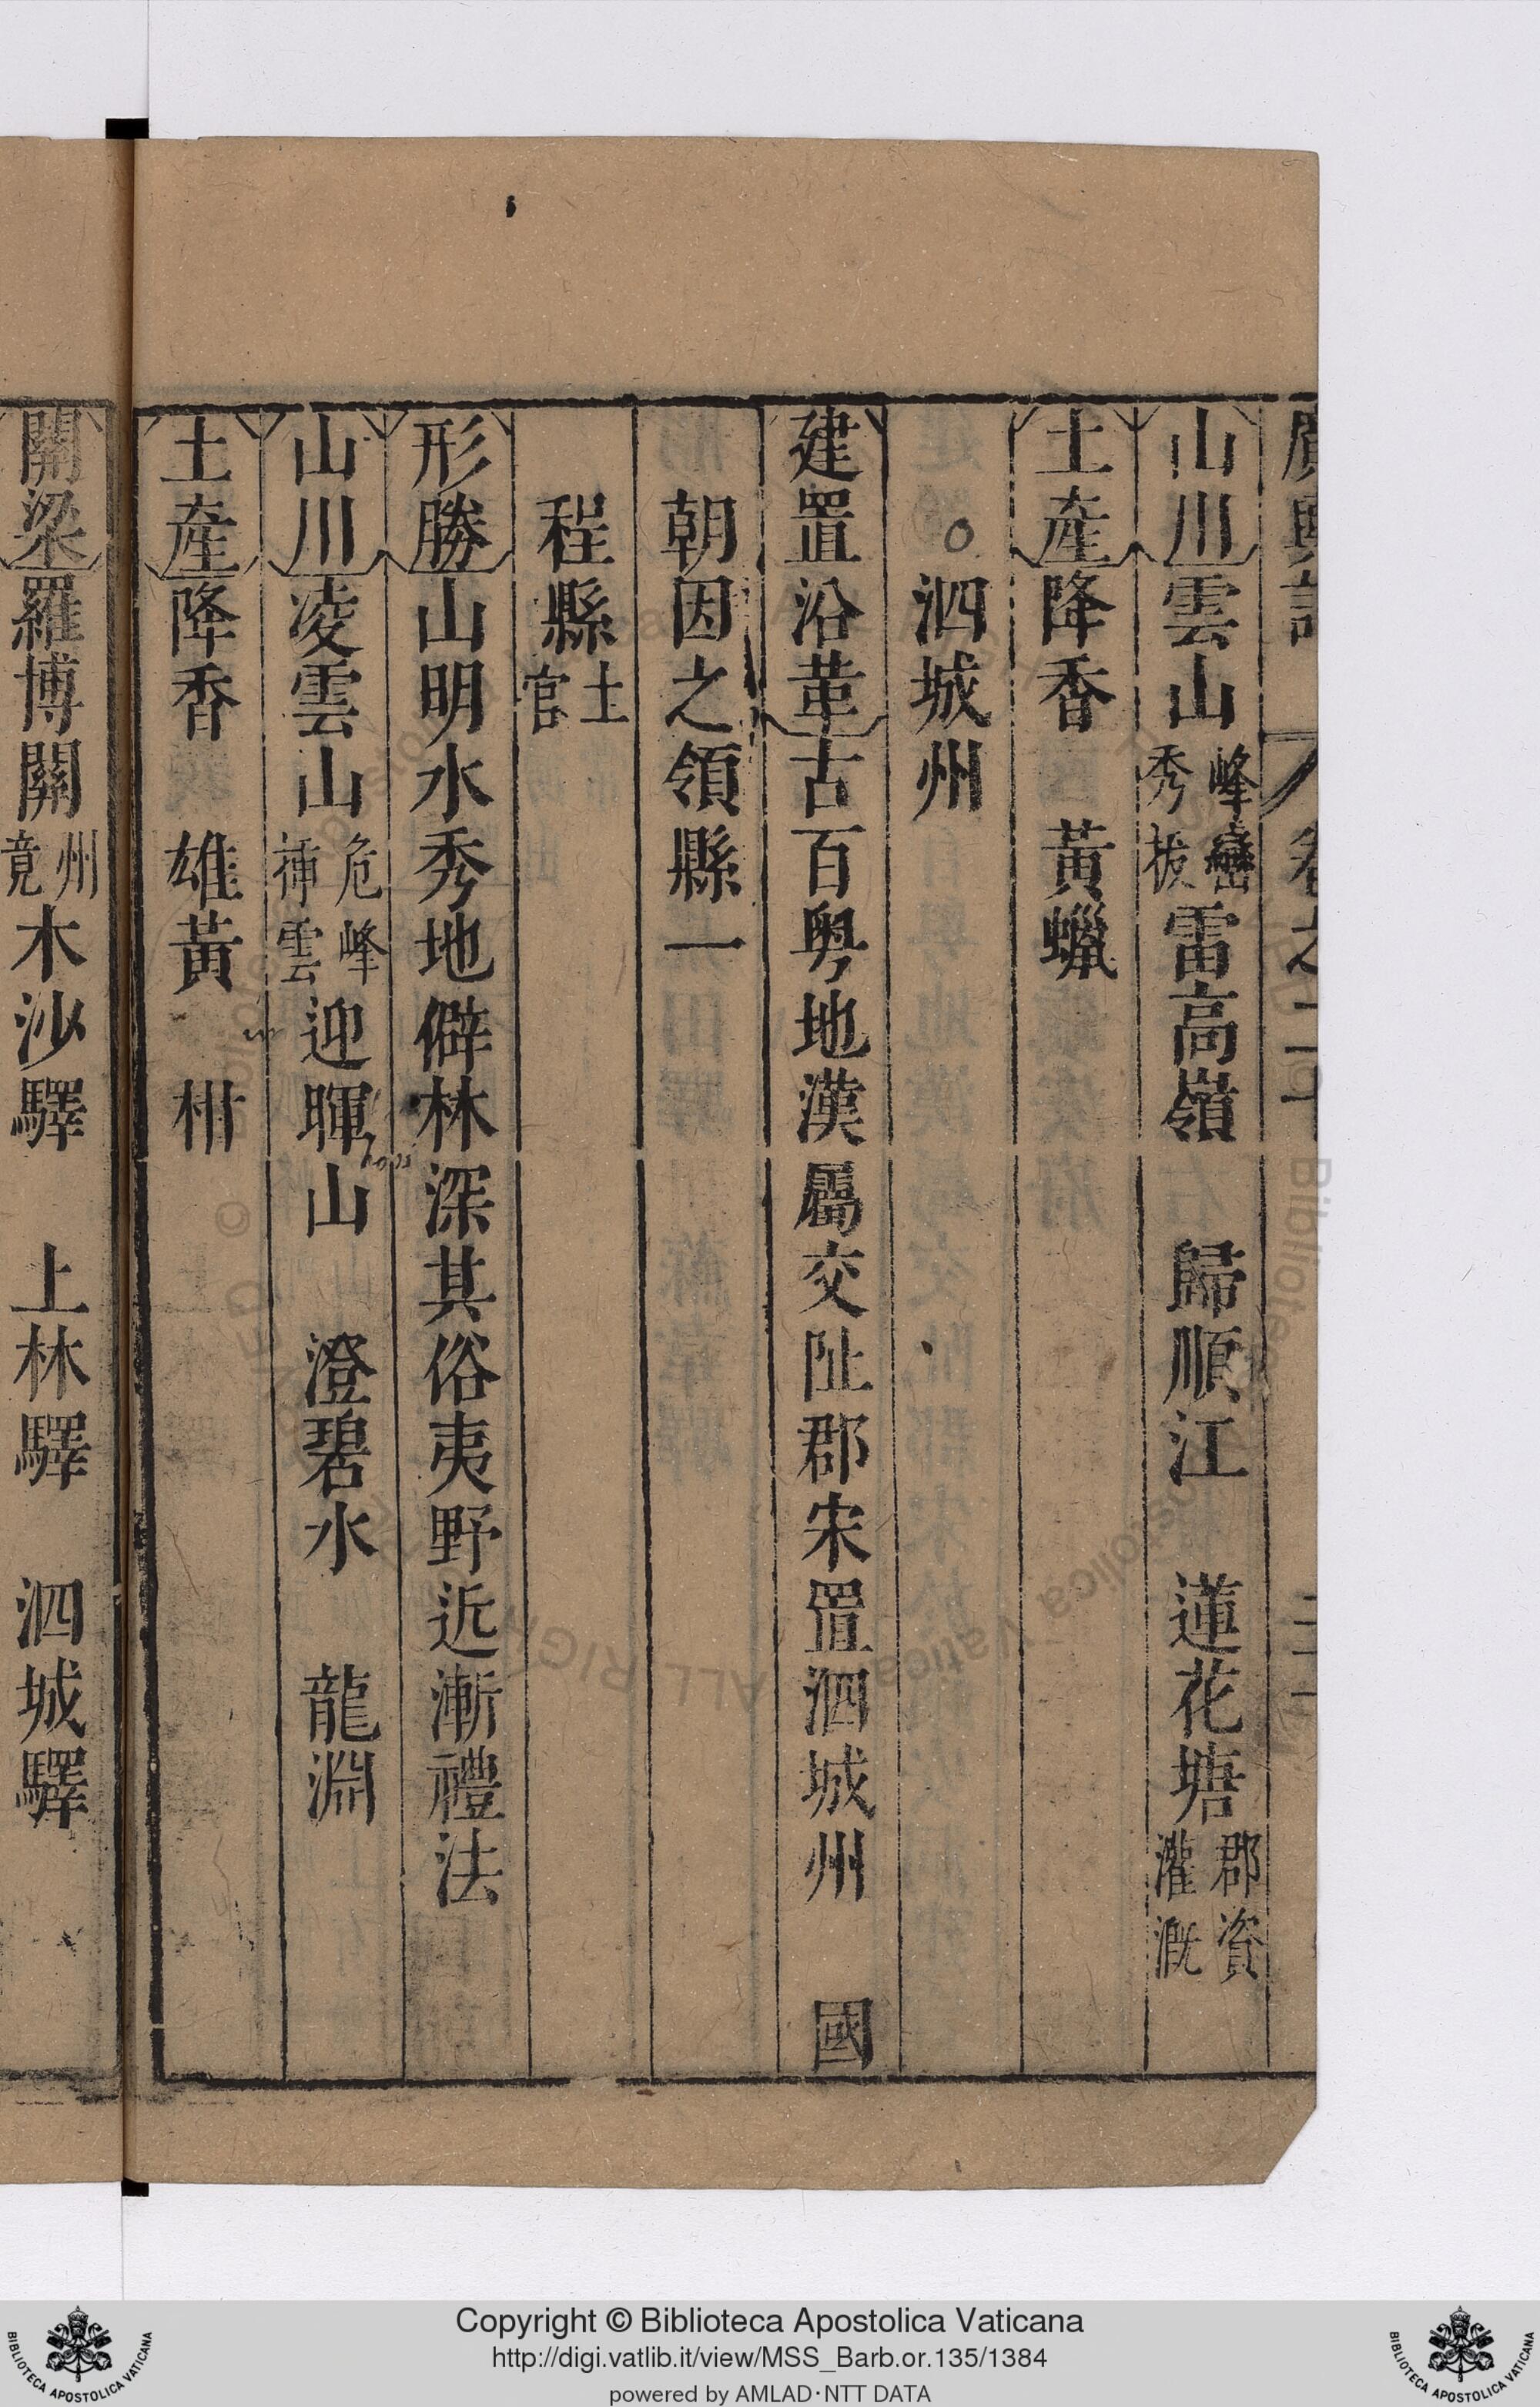 廣輿記 卷之二十 三十一
山川雲山峰巒秀拔雷高嶺 歸順江 蓮花塘郡資灌溉
土産降香 黃蠟
泗城州
建置沿革古百粵地漢屬交阯郡宋置泗城州 國
朝因之領縣一
程縣土官
形勝山明水秀地僻林深其俗夷野近漸禮法
山川凌雲山危峰揷雲迎暉山 澄碧水 龍淵
土産降香 雄黃 柑
關梁羅博關州竟木沙驛 上林驛 泗城驛
Copyright © Biblioteca Apostolica Vaticana
http://digi.vatlib.it/view/MSS_Barb.or.135/1384
powered by AMLAD·NTT DATA
BIBLIOTECA APOSTOLICA VATICANA
BIBLIOTECA APOSTOLICA VATICANA